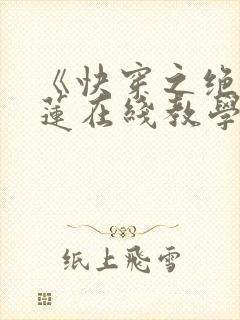 《快穿之绝
莲在线教学
纸上飛雪